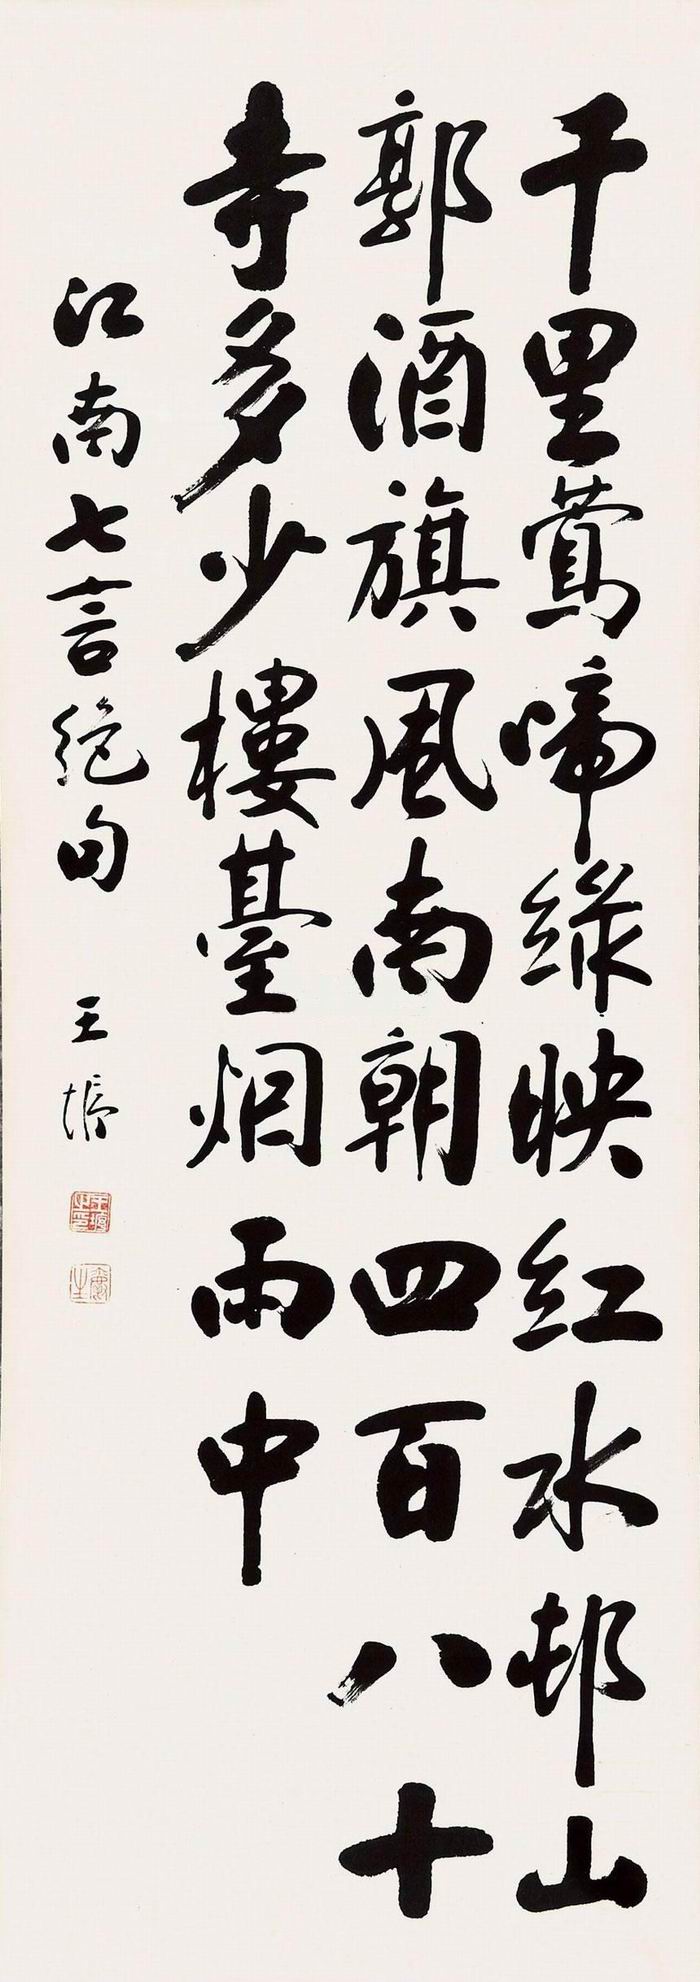 千里鶯啼綠映紅水邨山
郭酒旗風南朝四百八十
寺多少樓臺烟雨中
江南七言絕句
王